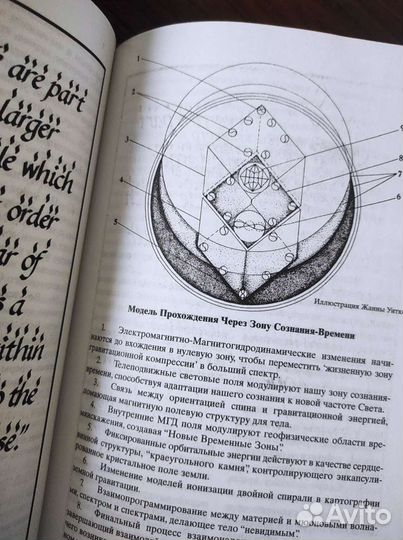 are part
larger
which
order
ar of
s a
within
to the
se."
1
2
3
4
5
9
8
7
6
Иллюстрация Жанны Уитк
Модель Прохождения Через Зону Сознания-Времени
1. Электромагнитно-Магнитогидродинамические изменения начи-
наются до вхождения в нулевую зону, чтобы переместить 'жизненную зону
гравитационной компрессии' в больший спектр.
2. Телеподвижные световые поля модулируют нашу зону сознания-
времени, способствуя адаптации нашего сознания к новой частоте Света.
3. Связь между ориентацией спина и гравитационной энергией,
магнитную полевую структуру для тела.
4. Внутренние МГД поля модулируют геофизические области вре-
создавая "Новые Временные Зоны".
5. Фиксированные орбитальные энергии действуют в качестве сердце-
структуры, "краеугольного камня", контролирующего энкапсули-
рованное кристальное поле земли.
6. Изменение моделей ионизации двойной спирали в картографии
гравитации.
7. Взаимопрограммирование между материей и
спектром и спектрами, делающее тело "невидимым".
8. Финальный процесс
завершающий
Avito